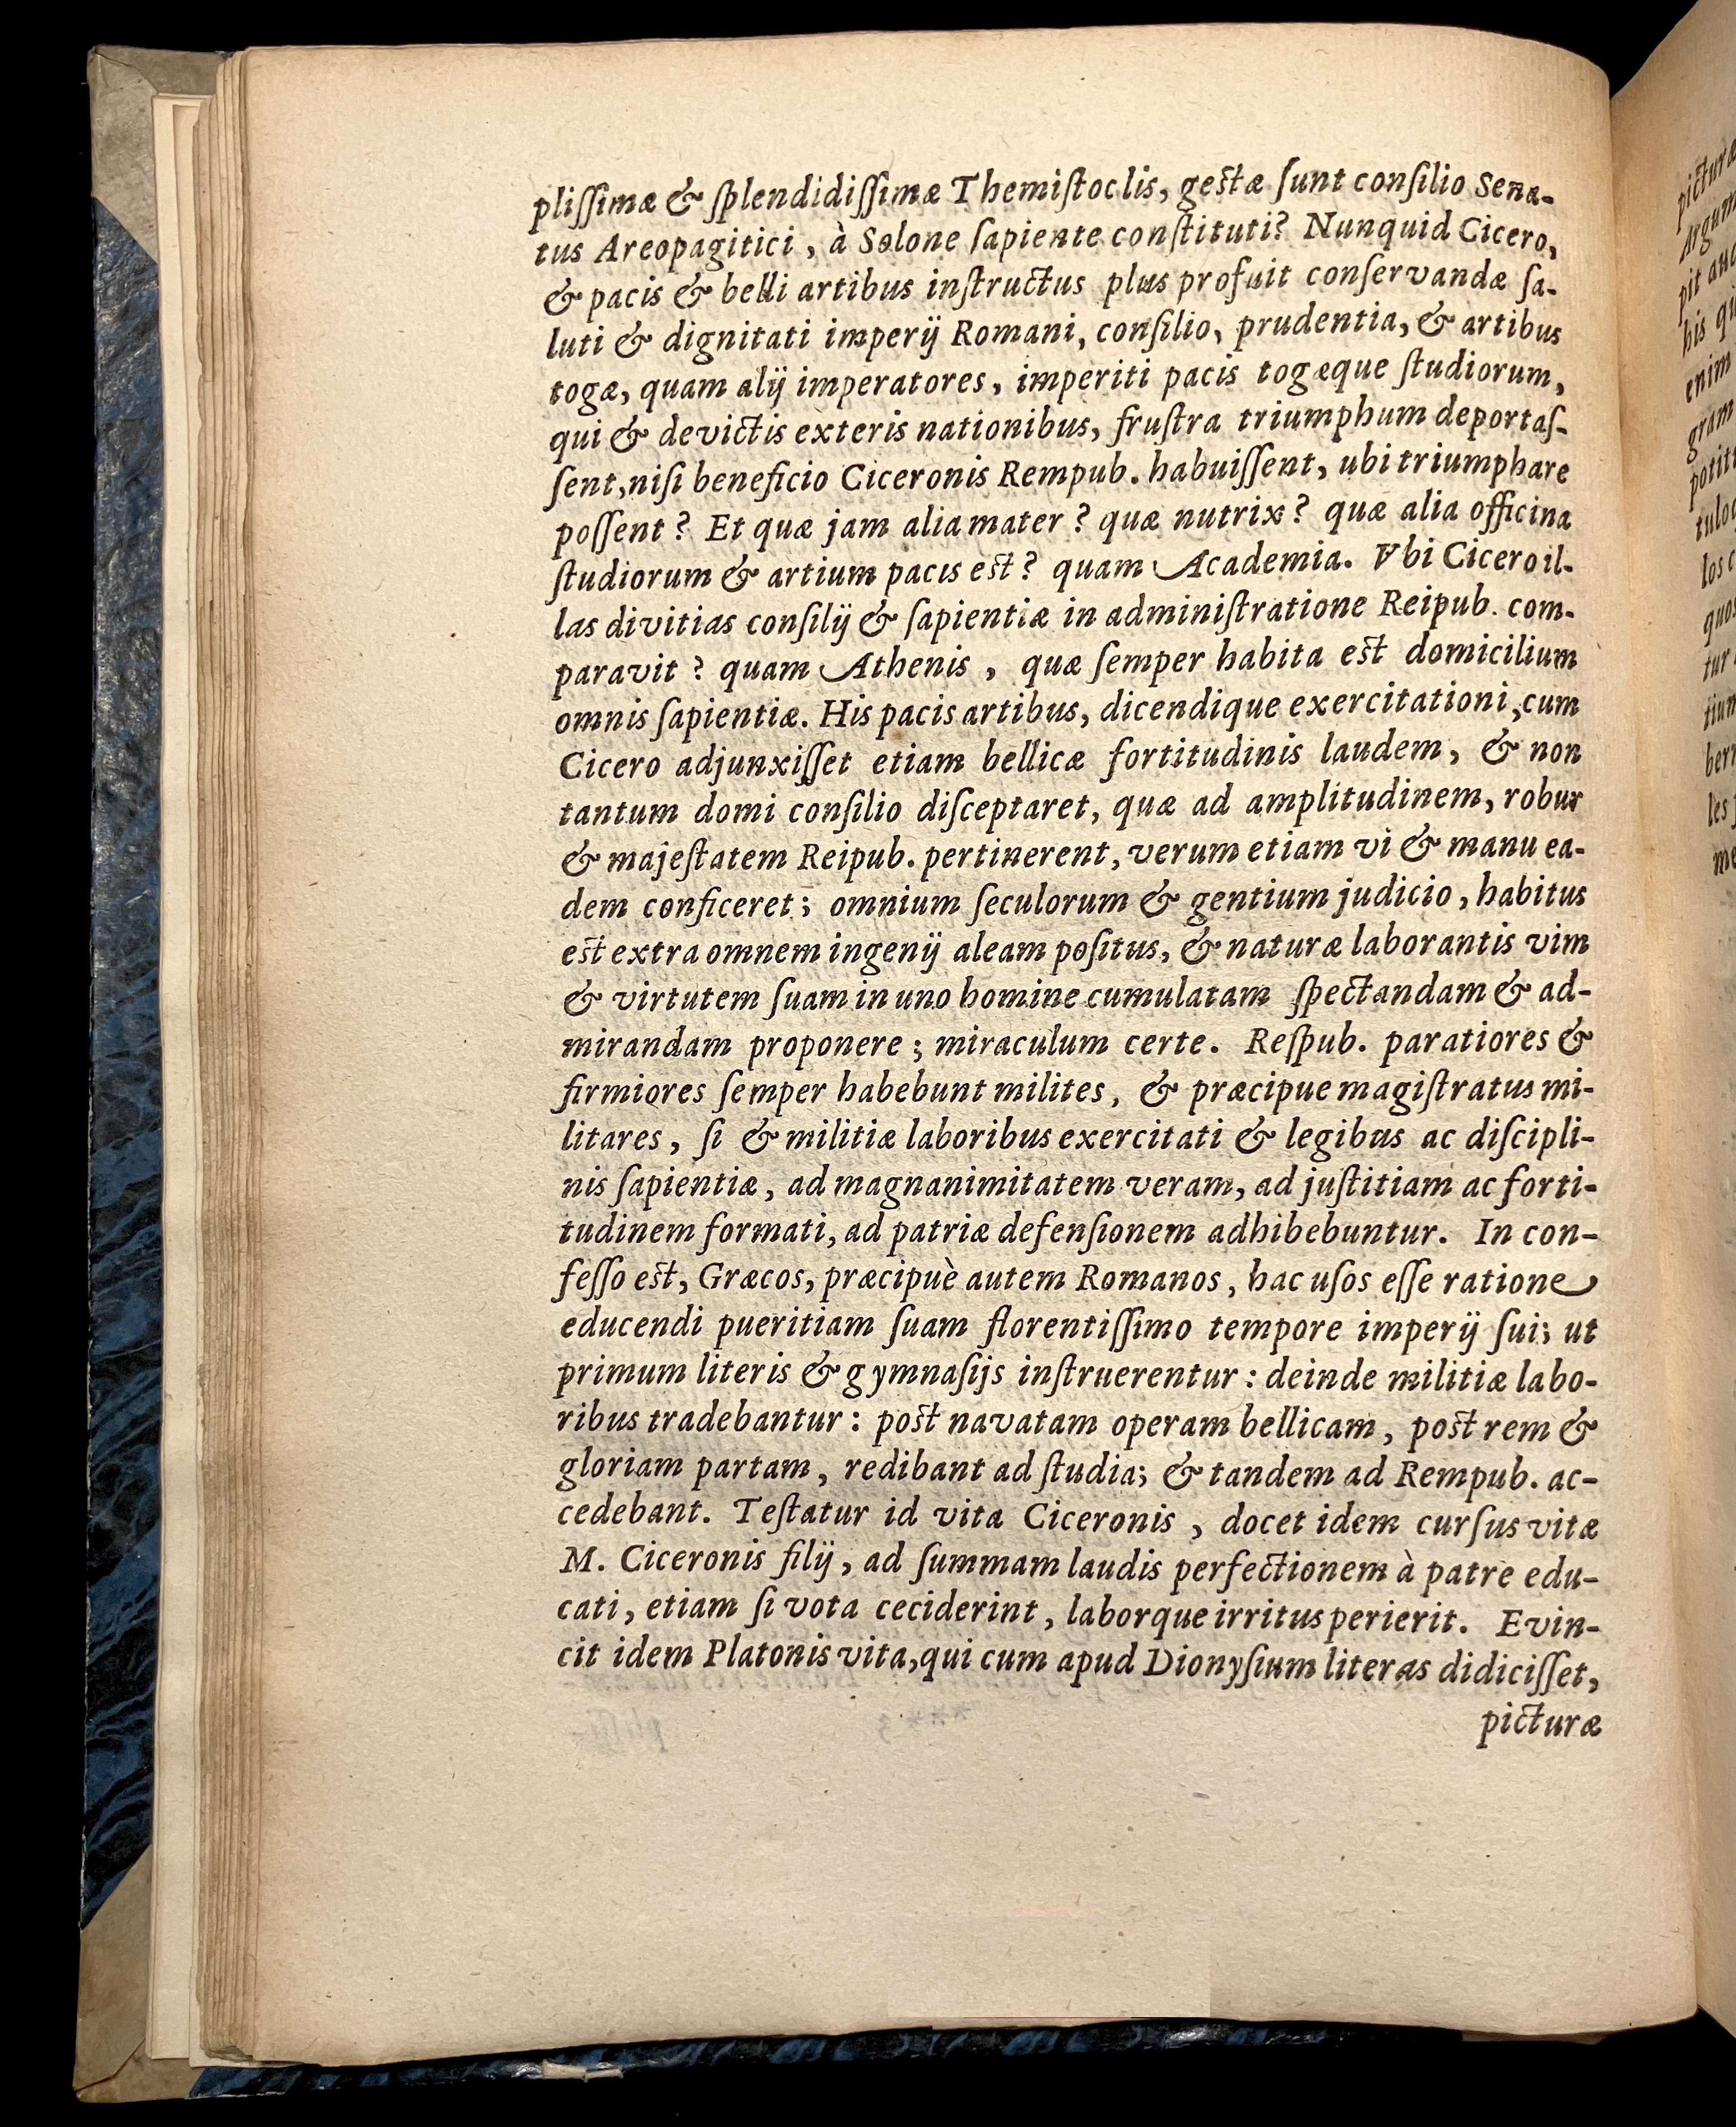 pliſſimæ & ſplendidiſſimæ Themiſtoclis, geſtæ ſunt conſilio Sena-
tus Areopagitici, à Solone ſapiente conſtituti? Nunquid Cicero,
& pacis & belli artibus inſtructus plus profuit conſervandæ ſa-
luti & dignitati imperij Romani, conſilio, prudentia, & artibus
togæ, quam alij imperatores, imperiti pacis togæque ſtudiorum,
qui & devictis exteris nationibus, fruſtra triumphum deportaſ-
ſent, niſi beneficio Ciceronis Rempub. habuiſſent, ubi triumphare
poſſent? Et quæ jam alia mater? quæ nutrix? quæ alia officina
ſtudiorum & artium pacis eſt? quam Academia. Vbi Cicero il-
las divitias conſilij & ſapientiæ in adminiſtratione Reipub. com-
paravit? quam Athenis, quæ ſemper habita eſt domicilium
omnis ſapientiæ. His pacis artibus, dicendique exercitationi, cum
Cicero adjunxiſſet etiam bellicæ fortitudinis laudem, & non
tantum domi conſilio diſceptaret, quæ ad amplitudinem, robur
& majeſtatem Reipub. pertinerent, verum etiam vi & manu ea-
dem conficeret; omnium ſeculorum & gentium judicio, habitus
eſt extra omnem ingenij aleam poſitus, & naturæ laborantis vim
& virtutem ſuam in uno homine cumulatam ſpectandam & ad-
mirandam proponere; miraculum certe. Reſpub. paratiores &
firmiores ſemper habebunt milites, & præcipue magiſtratus mi-
litares, ſi & militiæ laboribus exercitati & legibus ac diſcipli-
nis ſapientiæ, ad magnanimitatem veram, ad juſtitiam ac forti-
tudinem formati, ad patriæ defenſionem adhibebuntur. In con-
feſſo eſt, Græcos, præcipuè autem Romanos, hac uſos eſſe ratione
educendi pueritiam ſuam florentiſſimo tempore imperij ſui; ut
primum literis & gymnaſijs inſtruerentur: deinde militiæ labo-
ribus tradebantur: poſt navatam operam bellicam, poſt rem &
gloriam partam, redibant ad ſtudia; & tandem ad Rempub. ac-
cedebant. Teſtatur id vita Ciceronis, docet idem curſus vitæ
M. Ciceronis filij, ad ſummam laudis perfectionem à patre edu-
cati, etiam ſi vota ceciderint, laborque irritus perierit. Evin-
cit idem Platonis vita, qui cum apud Dionyſium literas didiciſſet,
picturæ
picturæ
pit
his
enim
gram
los
quos
tur
les